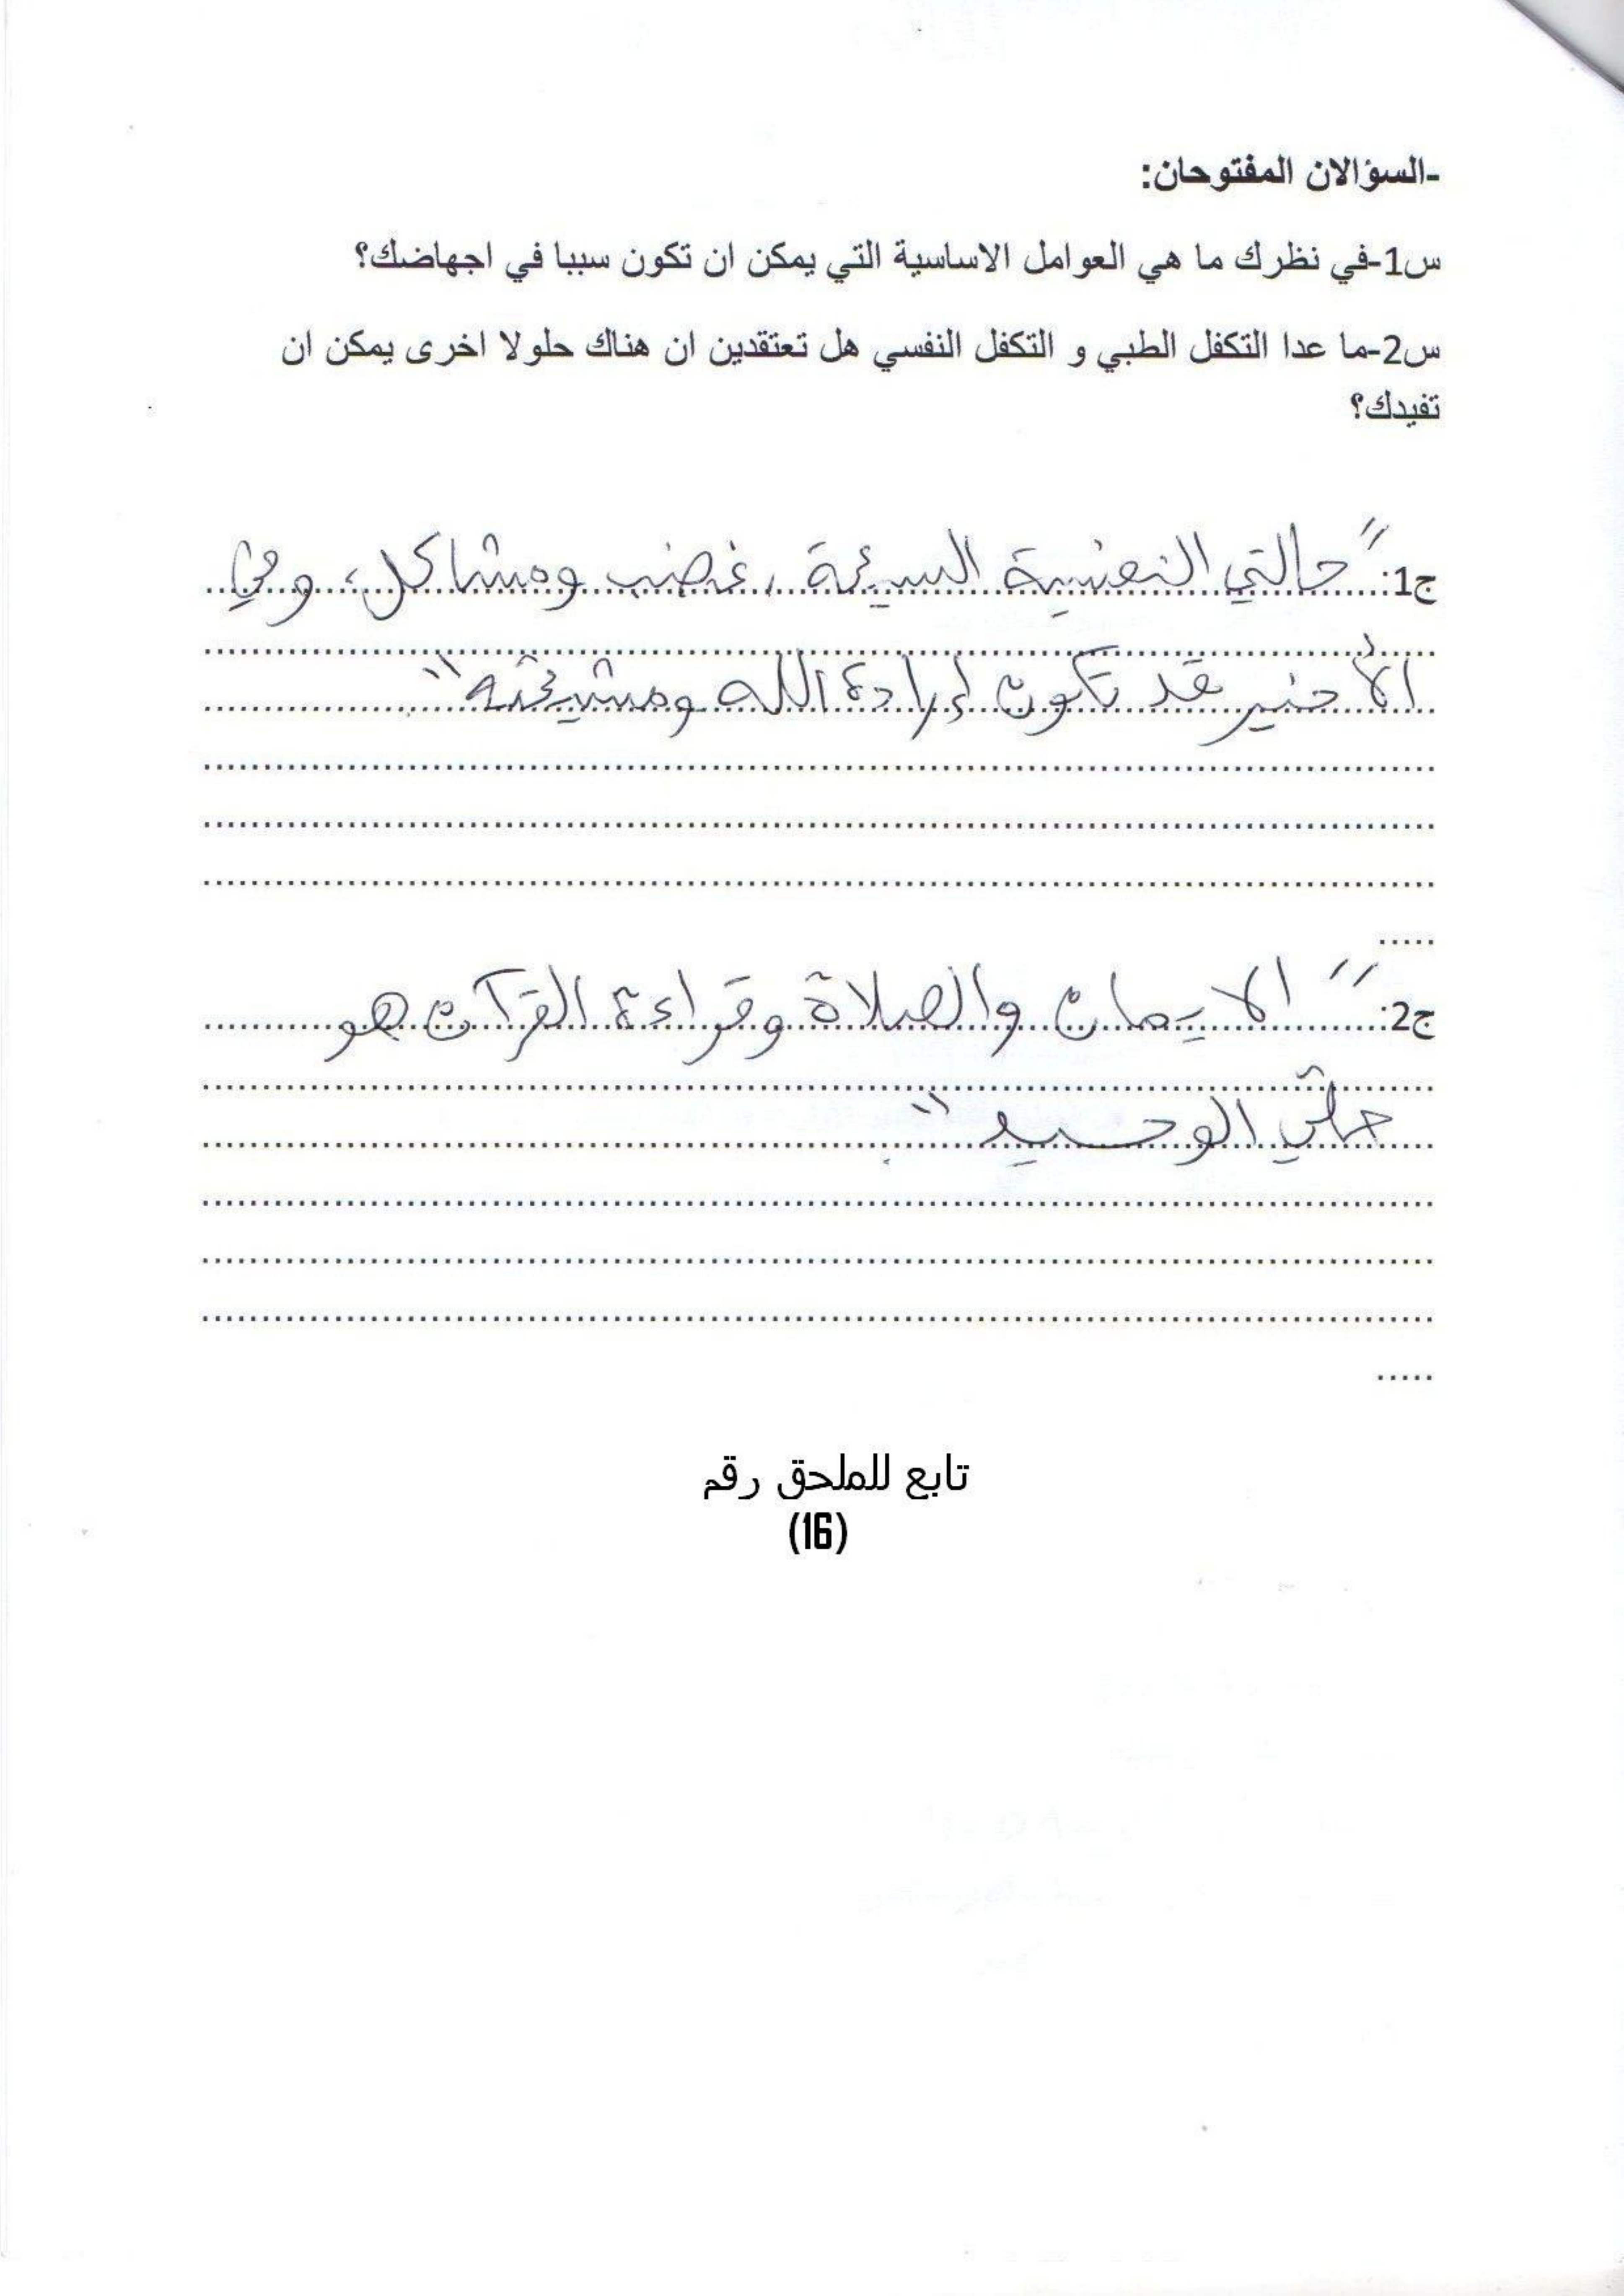 -السؤالان المفتوحان:
س1-في نظرك ما هي العوامل الاساسية التي يمكن ان تكون سببا في اجهاضك؟
س2-ما عدا التكفل الطبي و التكفل النفسي هل تعتقدين ان هناك حلولا اخرى يمكن ان
تفيدك؟
ج1: "حالتي النفسية السيئة، غضب ومشاكل، وفي
الأخير قد تكون إرادة الله ومشيئته"
ج2: "الايمان والصلاة وقراءة القرآن هو
حلّي الوحيد".
تابع للملحق رقم
(16)